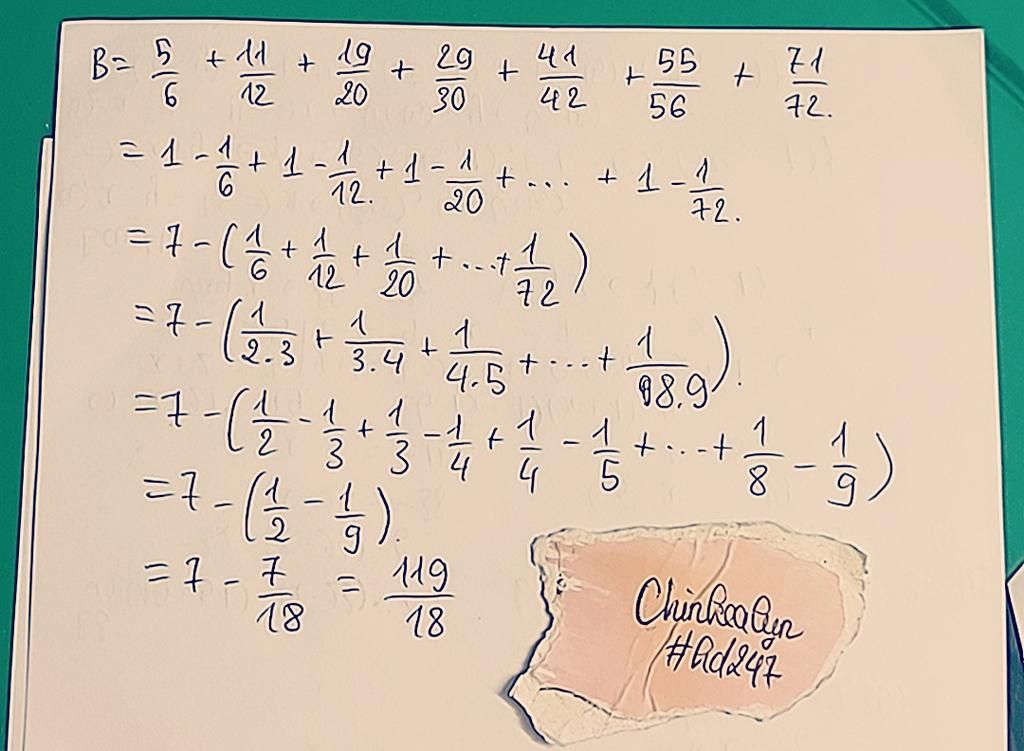 B= 5/6 + 11/12 + 19/20 + 29/30 + 41/42 + 55/56 + 71/72.
= 1 - 1/6 + 1 - 1/12. + 1 - 1/20 + ... + 1 - 1/72.
= 7 - (1/6 + 1/12 + 1/20 + ...+ 1/72)
= 7 - (1/2.3 + 1/3.4 + 1/4.5 + ... + 1/8.9).
= 7 - (1/2 - 1/3 + 1/3 - 1/4 + 1/4 - 1/5 + ... + 1/8 - 1/9)
= 7 - (1/2 - 1/9).
= 7 - 7/18 = 119/18
#Ad247